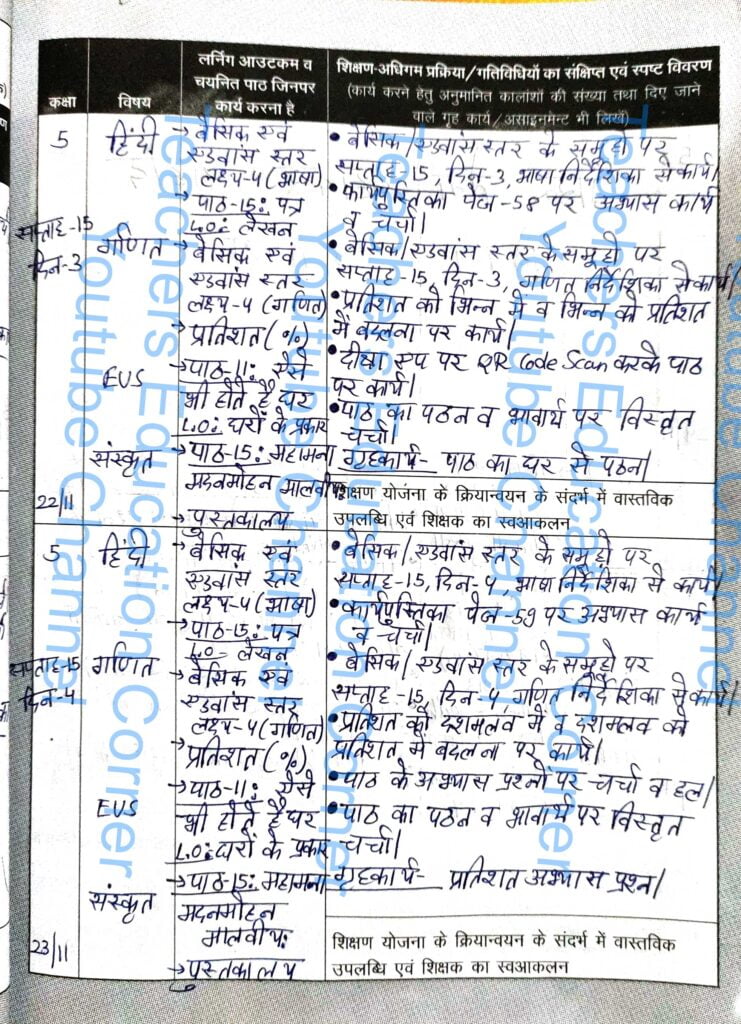 कक्षा
विषय
लर्निंग आउटकम व
चयनित पाठ जिनपर
कार्य करना है
शिक्षण-अधिगम प्रक्रिया/गतिविधियों का संक्षिप्त एवं स्पष्ट विवरण
(कार्य करने हेतु अनुमानित कालांशों की संख्या तथा दिए जाने
वाले गृह कार्य/असाइनमेन्ट भी लिखें)
5
हिंदी
→ बेसिक एवं
एडवांस स्तर
लक्ष्य-4 (भाषा)
→ पाठ-15: पत्र
L.O: लेखन
• बेसिक/एडवांस स्तर के समूहो पर
सप्ताह-15, दिन-3, भाषा निर्देशिका से कार्य।
• कार्यपुस्तिका पेज-58 पर अभ्यास कार्य
व चर्चा।
सप्ताह-15
दिन-3
गणित
→ बेसिक एवं
एडवांस स्तर
लक्ष्य-4 (गणित)
→ प्रतिशत (%)
• बेसिक/एडवांस स्तर के समूहो पर
सप्ताह-15, दिन-3, गणित निर्देशिका से कार्य।
• प्रतिशत को भिन्न में व भिन्न को प्रतिशत
में बदलना पर कार्य।
EVS
→ पाठ-11: ऐसे
भी होते है घर
L.O: घरों के प्रकार
• दीक्षा एप पर QR Code Scan करके पाठ
पर कार्य।
संस्कृत
→ पाठ-15: महामना
मदनमोहन मालवीय:
→ पुस्तकालय
• पाठ का पठन व भावार्थ पर विस्तृत
चर्चा।
गृहकार्य- पाठ का घर से पठन।
22/11
शिक्षण योजना के क्रियान्वयन के संदर्भ में वास्तविक
उपलब्धि एवं शिक्षक का स्वआकलन
5
हिंदी
→ बेसिक एवं
एडवांस स्तर
लक्ष्य-4 (भाषा)
→ पाठ-15: पत्र
L.O- लेखन
• बेसिक/एडवांस स्तर के समूहो पर
सप्ताह-15, दिन-4, भाषा निर्देशिका से कार्य।
• कार्यपुस्तिका पेज-59 पर अभ्यास कार्य
व चर्चा।
सप्ताह-15
दिन-4
गणित
→ बेसिक एवं
एडवांस स्तर
लक्ष्य-4 (गणित)
→ प्रतिशत (%)
• बेसिक/एडवांस स्तर के समूहो पर
सप्ताह-15, दिन-4, गणित निर्देशिका से कार्य।
• प्रतिशत को दशमलव में व दशमलव को
प्रतिशत में बदलना पर कार्य।
EVS
→ पाठ-11: ऐसे
भी होते है घर
L.O: घरों के प्रकार
• पाठ के अभ्यास प्रश्नो पर चर्चा व हल।
संस्कृत
→ पाठ-15: महामना
मदनमोहन
मालवीय:
→ पुस्तकालय
• पाठ का पठन व भावार्थ पर विस्तृत
चर्चा।
गृहकार्य- प्रतिशत अभ्यास प्रश्न।
23/11
शिक्षण योजना के क्रियान्वयन के संदर्भ में वास्तविक
उपलब्धि एवं शिक्षक का स्वआकलन
Teachers Education Corner
Youtube Channel
Teachers Education Corner
Youtube Channel
Teachers Education Corner
Youtube Channel